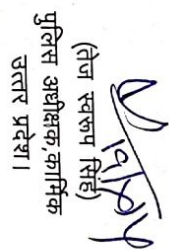 (तेज स्वरूप सिंह)
पुलिस अधीक्षक,कार्मिक
उत्तर प्रदेश।